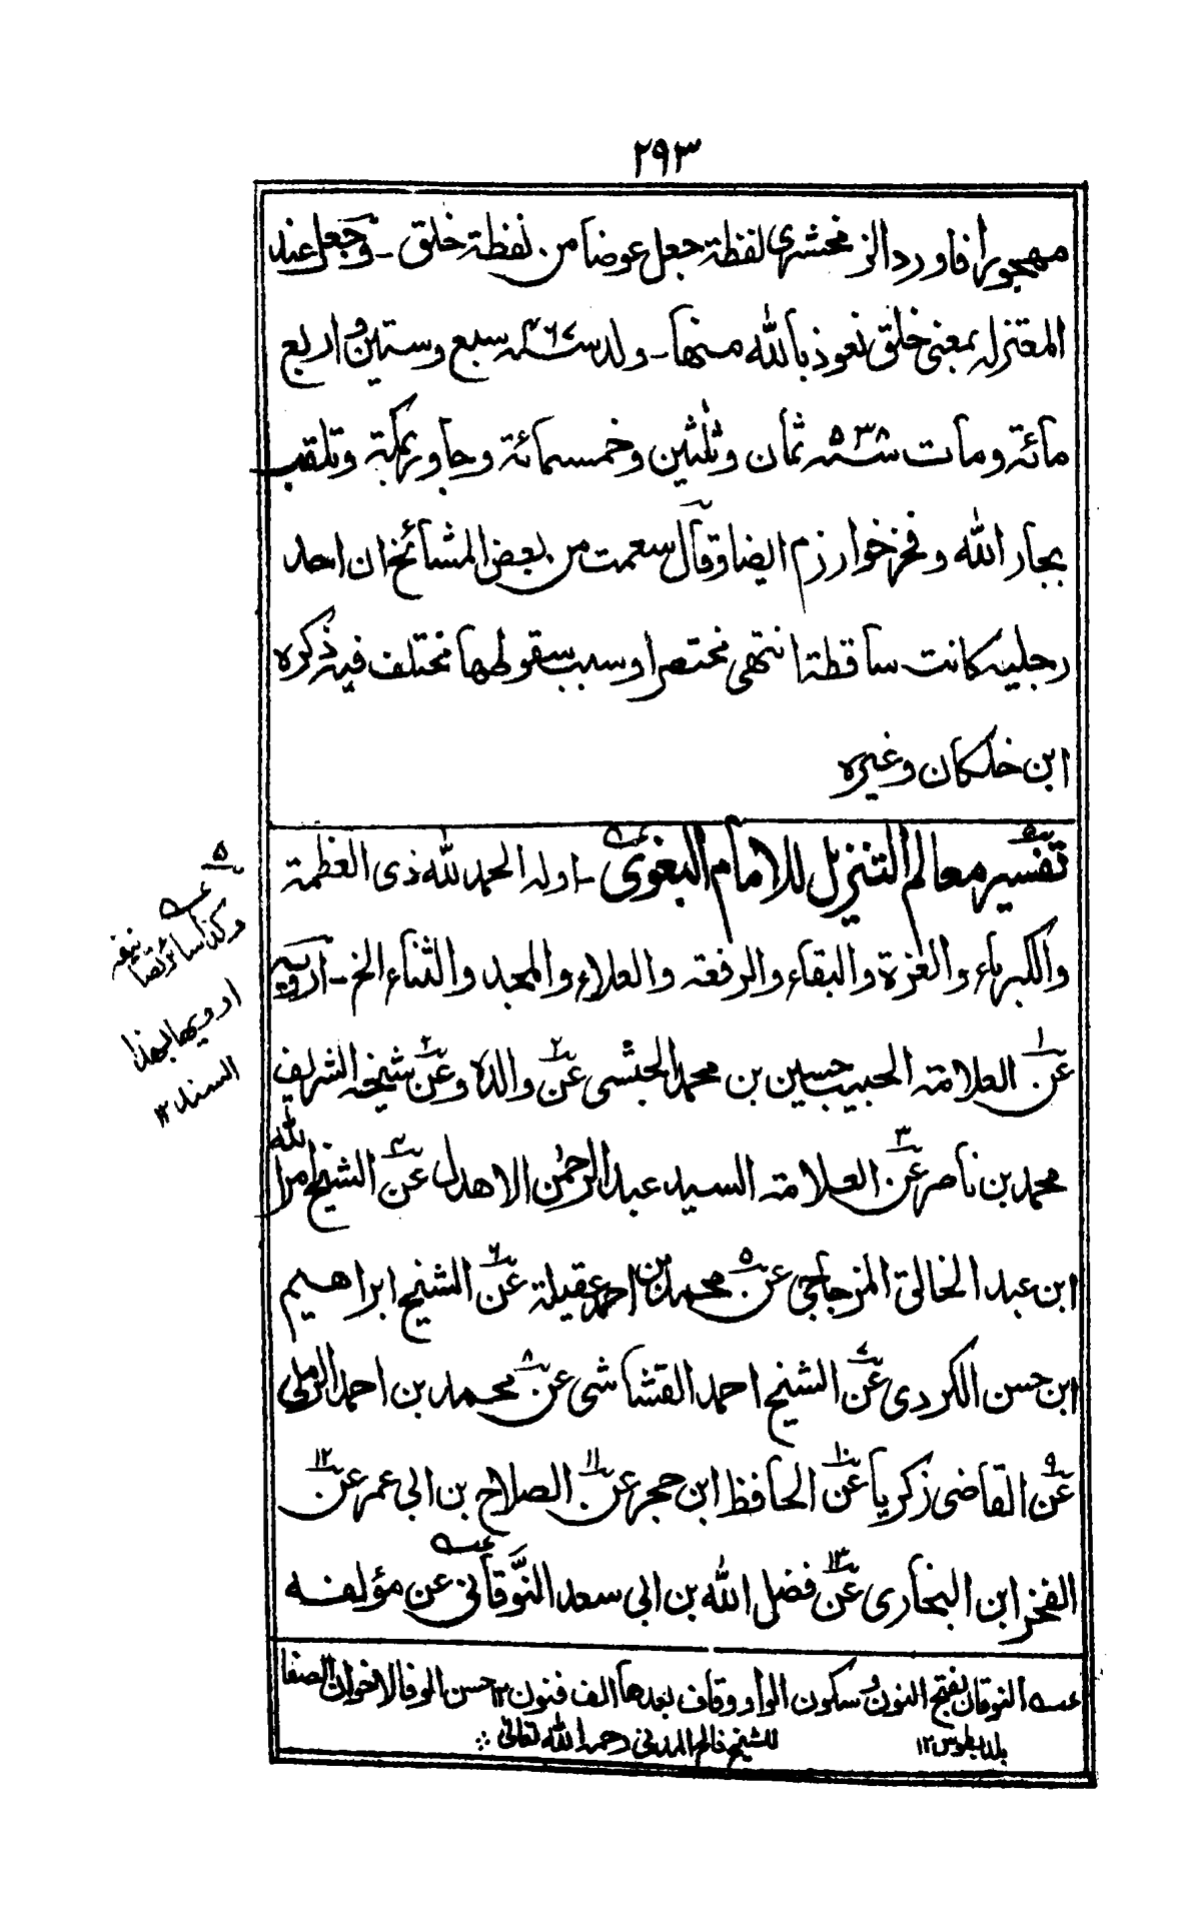 ٢٩٣
مهجورا فاورد الزمخشري لفظة جعل عوضا من لفظة خلق - وجعل عند
المعتزله بمعنى خلق نعوذ بالله منها - ولد سنة ٤٦٧ سبع وستين واربع
مائة ومات سنة ٥٣٨ ثمان وثلثين وخمسمائة وجاور بمكة وتلقب
بجار الله وفخر خوارزم ايضا وقال سمعت من بعض المشائخ ان احد
رجليه كانت ساقطة انتهى مختصرا وسبب سقوطها مختلف فيه ذكره
ابن خلكان وغيره
تفسير معالم التنزيل للامام البغوى - اوله الحمد لله ذى العظمة
والكبرياء والعزة والبقاء والرفعة والعلاء والمجد والثناء الخ - ارويه
عن١ العلامة الحبيب حسين بن محمد الحبشى عن٢ والده وعن٢ شيخه الشريف
محمد بن ناصر عن٣ العلامة السيد عبد الرحمٰن الاهدل عن٤ الشيخ امر الله
ابن عبد الخالق المزجاجي عن٥ محمد بن احمد عقيلة عن٦ الشيخ ابراهيم
ابن حسن الكردى عن٧ الشيخ احمد القشاشى عن٨ محمد بن احمد الرملى
عن٩ القاضى زكريا عن١٠ الحافظ ابن حجر عن١١ الصلاح بن ابى عمر عن١٢
الفخر ابن البخارى عن١٣ فضل الله بن ابى سعد النَّوقانى عن مؤلفه
عـه النوقان بفتح النون وسكون الواو وقاف بعدها الف فنون ١٢ حسن الوفا لاخوان الصفا
بلد بطوس ١٢ للشيخ فالح المدنى رحمه الله تعالى
٥
عـه
وكذا سائر تصانيفه
ارويها بهذا
السند ١٢